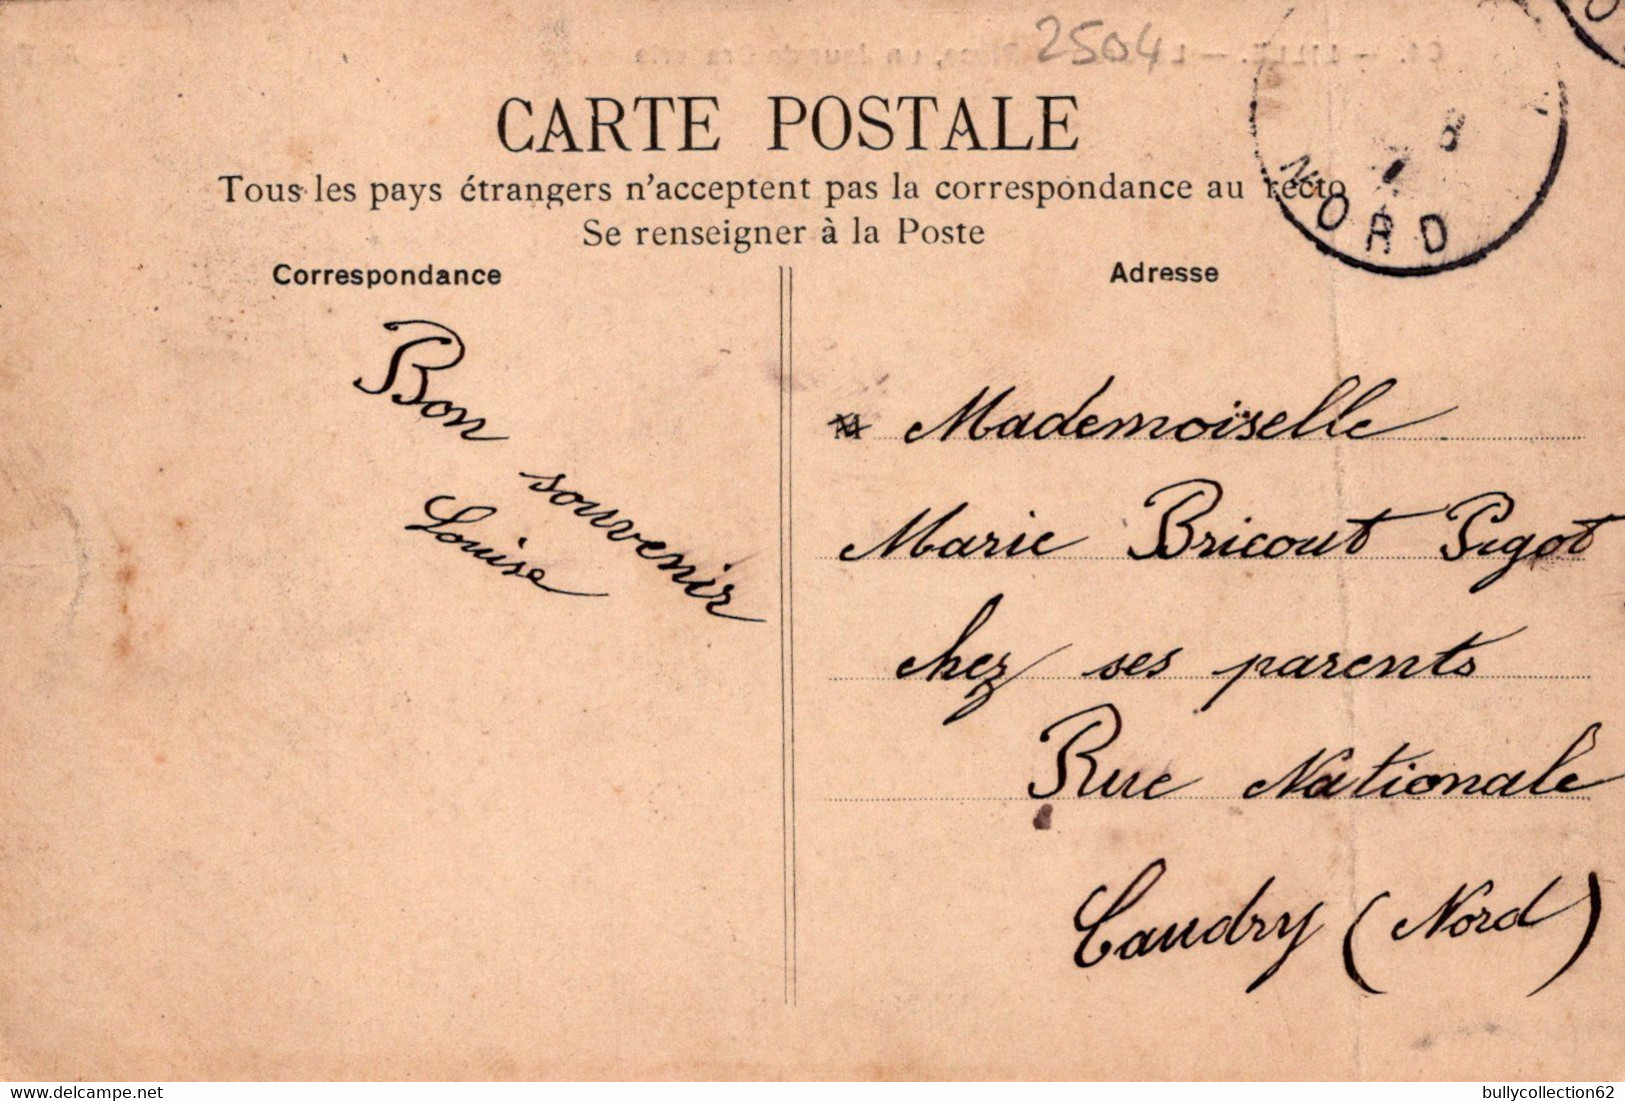 2504
CARTE POSTALE
Tous les pays étrangers n'acceptent pas la correspondance au recto
Se renseigner à la Poste
Correspondance
Adresse
NORD
Bon souvenir
Louise
M
Mademoiselle
Marie Bricout Pigot
chez ses parents
Rue Nationale
Caudry (Nord)
delcampe.net
bullycollection62